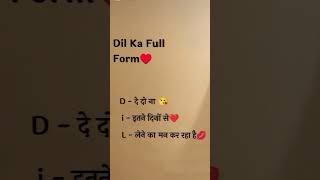 Dil Ka Full
Form❤️
D - दे दो ना 😘
i - इतने दिनों से💔
L - लेने का मन कर रहा है💋